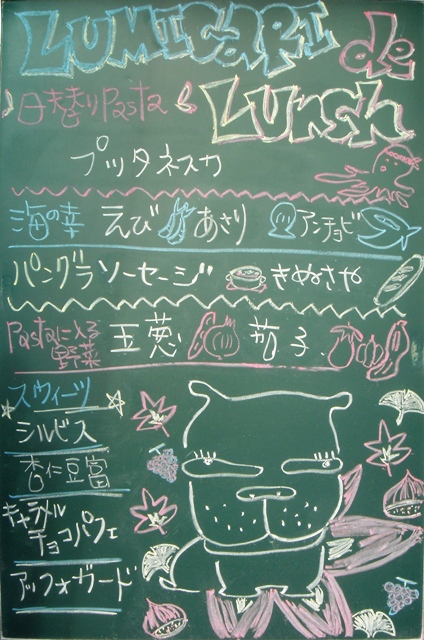 LUMICARI de
Lunch
日替り Pasta
プッタネスカ
海の幸 えび あさり アンチョビ
パングラソーセージ きぬさや
Pastaに入る
野菜 玉葱 茄子
スウィーツ
シルビス
杏仁豆富
キャラメル
チョコパフェ
アッフォガード